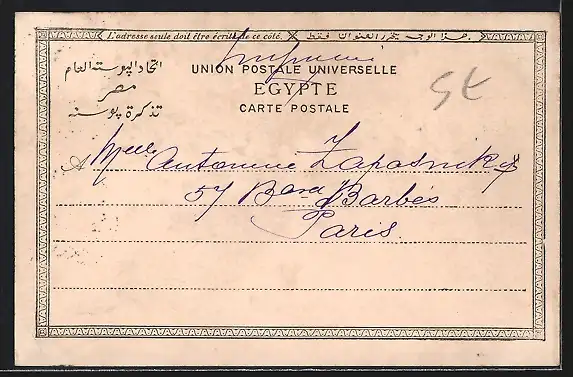 L'adresse seule doit être écrite de ce côté.
هذا الوجه يحرر العنوان فقط
Imprimé
اتحاد البوسته العام
مصر
تذكرة بوسته
UNION POSTALE UNIVERSELLE
EGYPTE
CARTE POSTALE
A Melle Antonine Zapasnik
57 Bard Barbés
Paris.